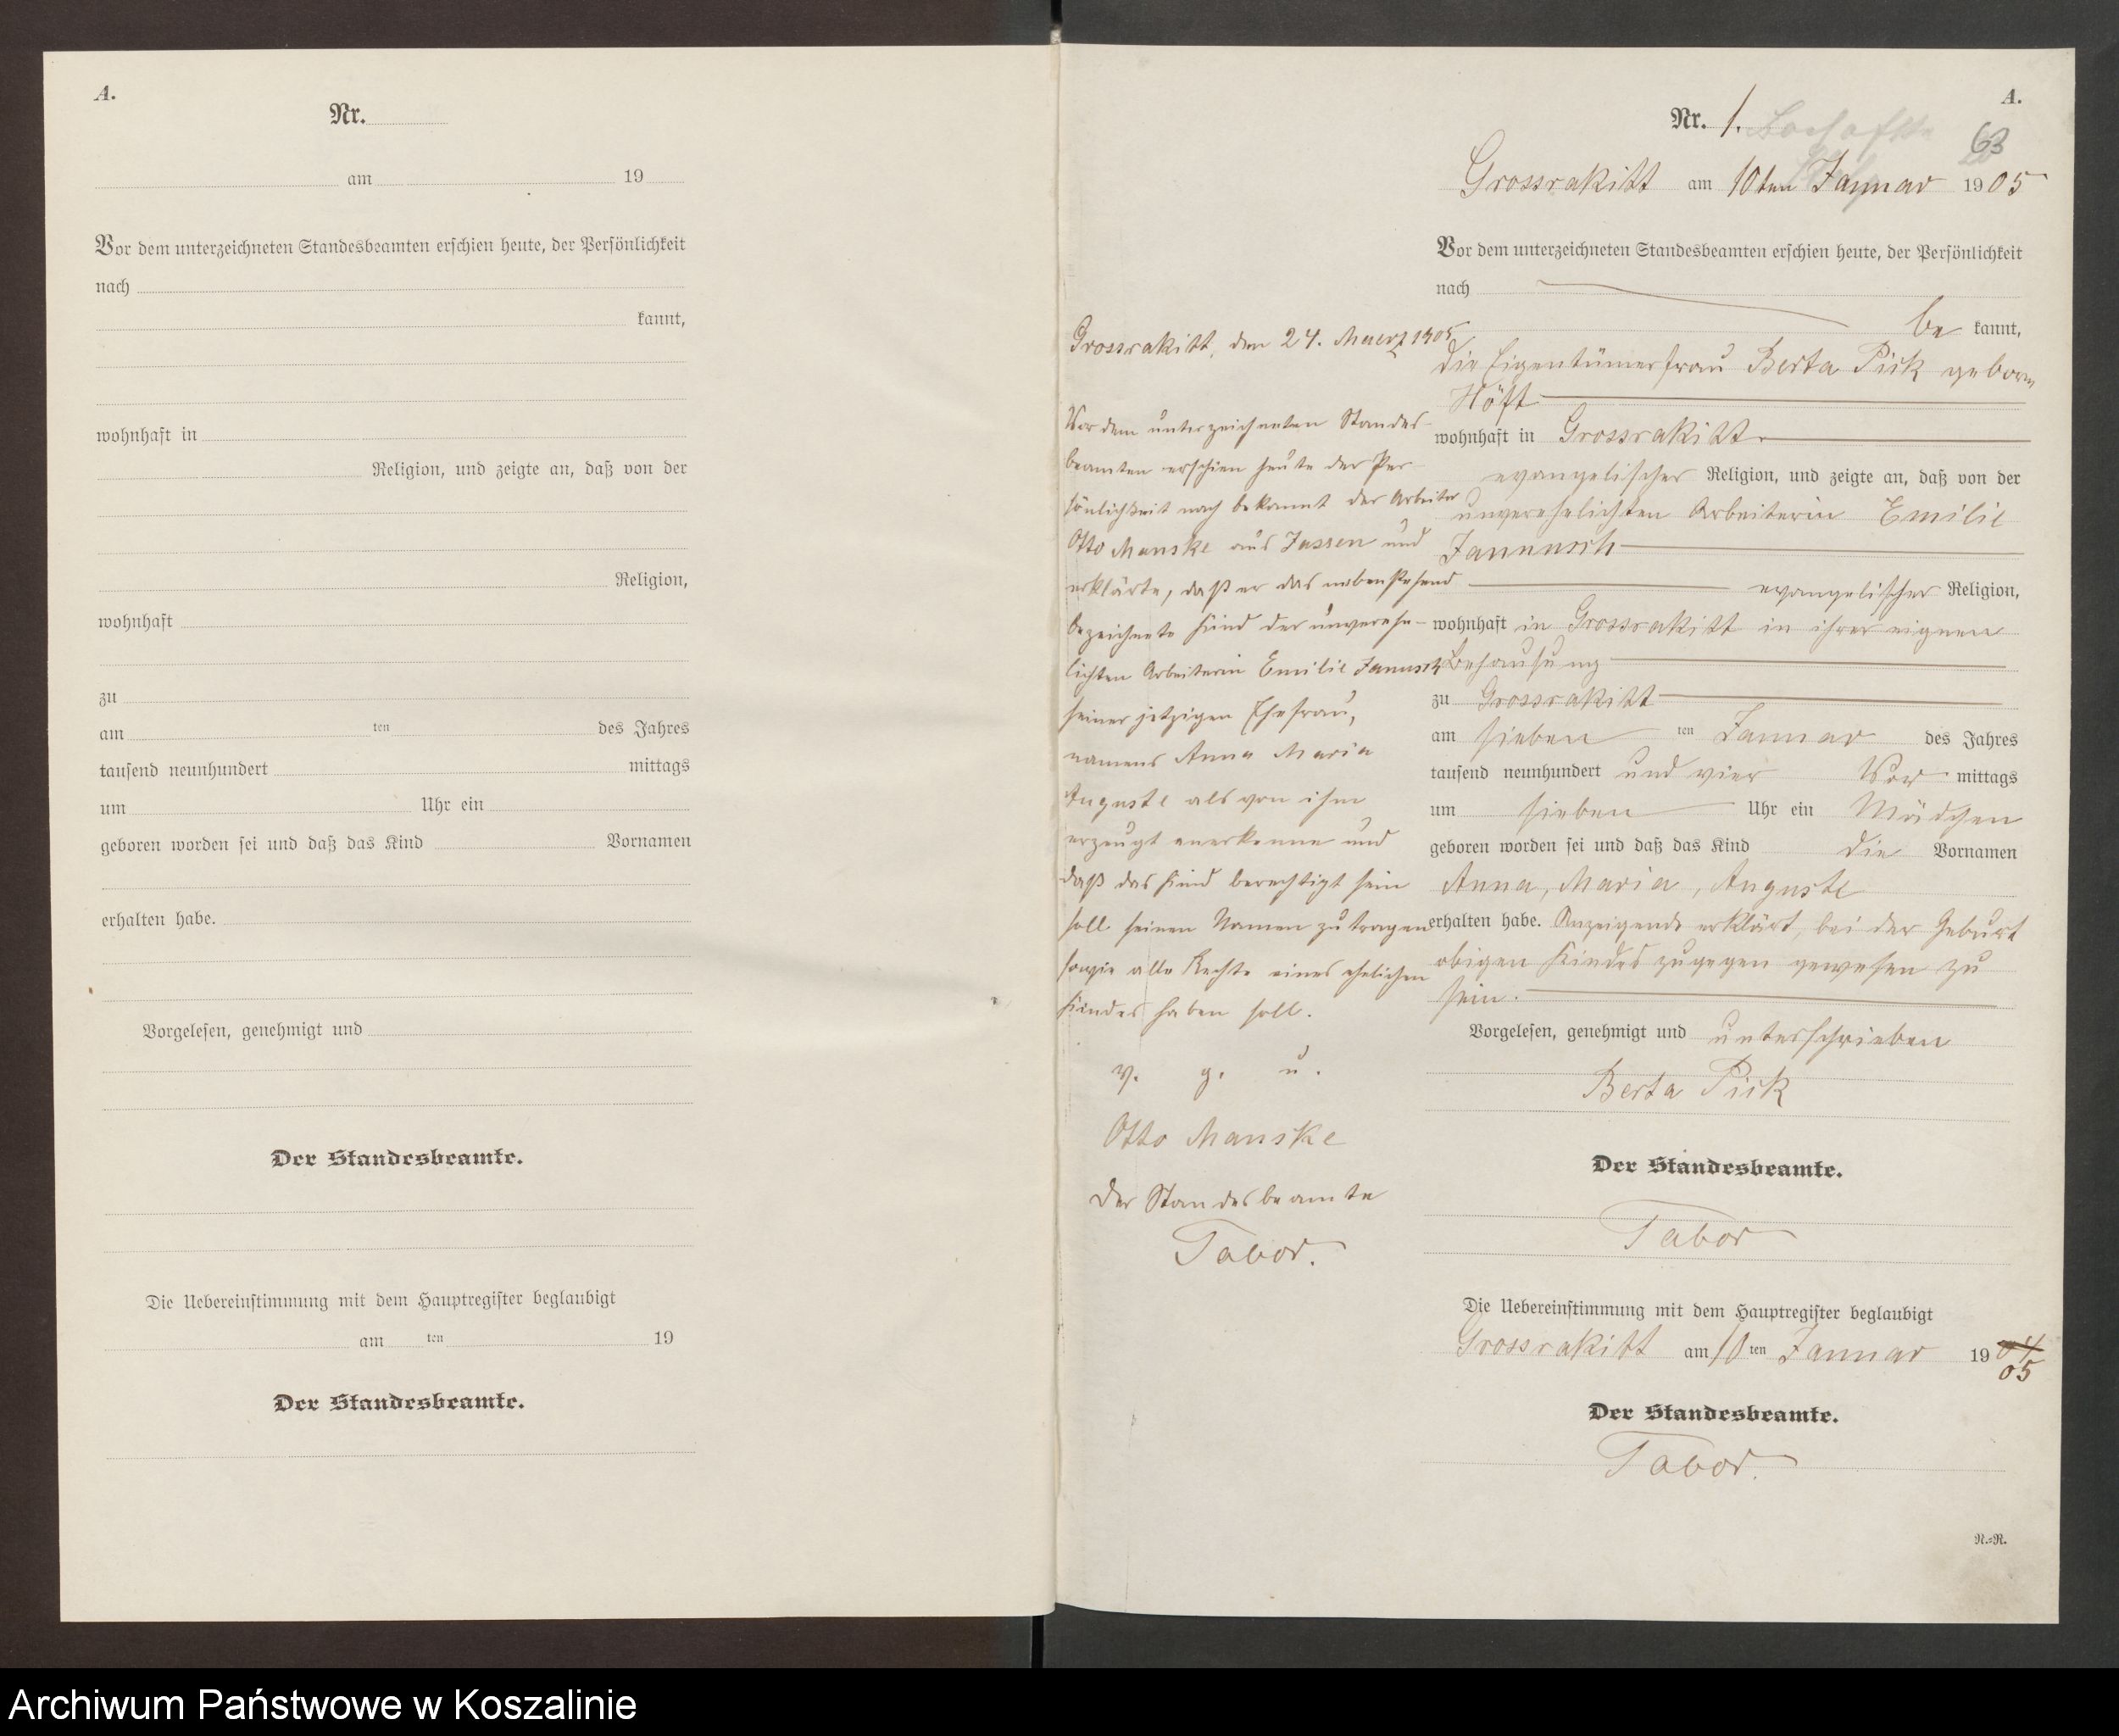 A.
Nr.
am 19
Vor dem unterzeichneten Standesbeamten erschien heute, der Persönlichkeit
nach
kannt,
wohnhaft in
Religion, und zeigte an, daß von der
Religion,
wohnhaft
zu
am ten des Jahres
tausend neunhundert mittags
um Uhr ein
geboren worden sei und daß das Kind Vornamen
erhalten habe.
Vorgelesen, genehmigt und
Der Standesbeamte.
Die Uebereinstimmung mit dem Hauptregister beglaubigt
am ten 19
Der Standesbeamte.
Grossrakitt, den 24. Maerz 1905
Vor dem unterzeichneten Standes
beamten erschien heute der Per
sönlichkeit nach bekannt der Arbeiter
Otto Manske aus Jassen und
erklärte, daß er das nebenstehend
bezeichnete Kind der unverehe-
lichten Arbeiterin Emilie Janusch
seiner jetzigen Ehefrau,
namens Anna Maria
Auguste als von ihm
erzeugt anerkenne und
daß das Kind berechtigt sein
soll seinen Namen zu tragen
sowie alle Rechte eines ehelichen
Kindes haben soll.
v. g. u.
Otto Manske
Der Standesbeamte
Tabor.
A.
Nr. 1.
63
Grossrakitt am 10ten Januar 1905
Vor dem unterzeichneten Standesbeamten erschien heute, der Persönlichkeit
nach
be kannt,
die Eigentümerfrau Berta Pick geboren
Höft
wohnhaft in Grossrakitt
evangelischer Religion, und zeigte an, daß von der
unverehelichten Arbeiterin Emilie
Jannusch
evangelischer Religion,
wohnhaft in Grossrakitt in ihrer eignen
Behausung
zu Grossrakitt
am sieben ten Januar des Jahres
tausend neunhundert und vier Vor mittags
um sieben Uhr ein Mädchen
geboren worden sei und daß das Kind die Vornamen
Anna, Maria, Auguste
erhalten habe. Anzeigende erklärt, bei der Geburt
obigen Kindes zugegen gewesen zu
sein.
Vorgelesen, genehmigt und unterschrieben
Berta Pick
Der Standesbeamte.
Tabor
Die Uebereinstimmung mit dem Hauptregister beglaubigt
Grossrakitt am 10 ten Januar 19 04
05
Der Standesbeamte.
Tabor.
N.=R.
Archiwum Państwowe w Koszalinie